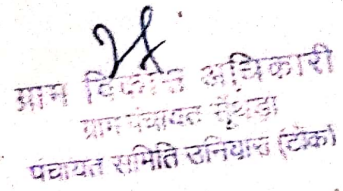 ग्राम विकास अधिकारी
ग्राम पंचायत
पंचायत समिति उनियारा (टोंक)